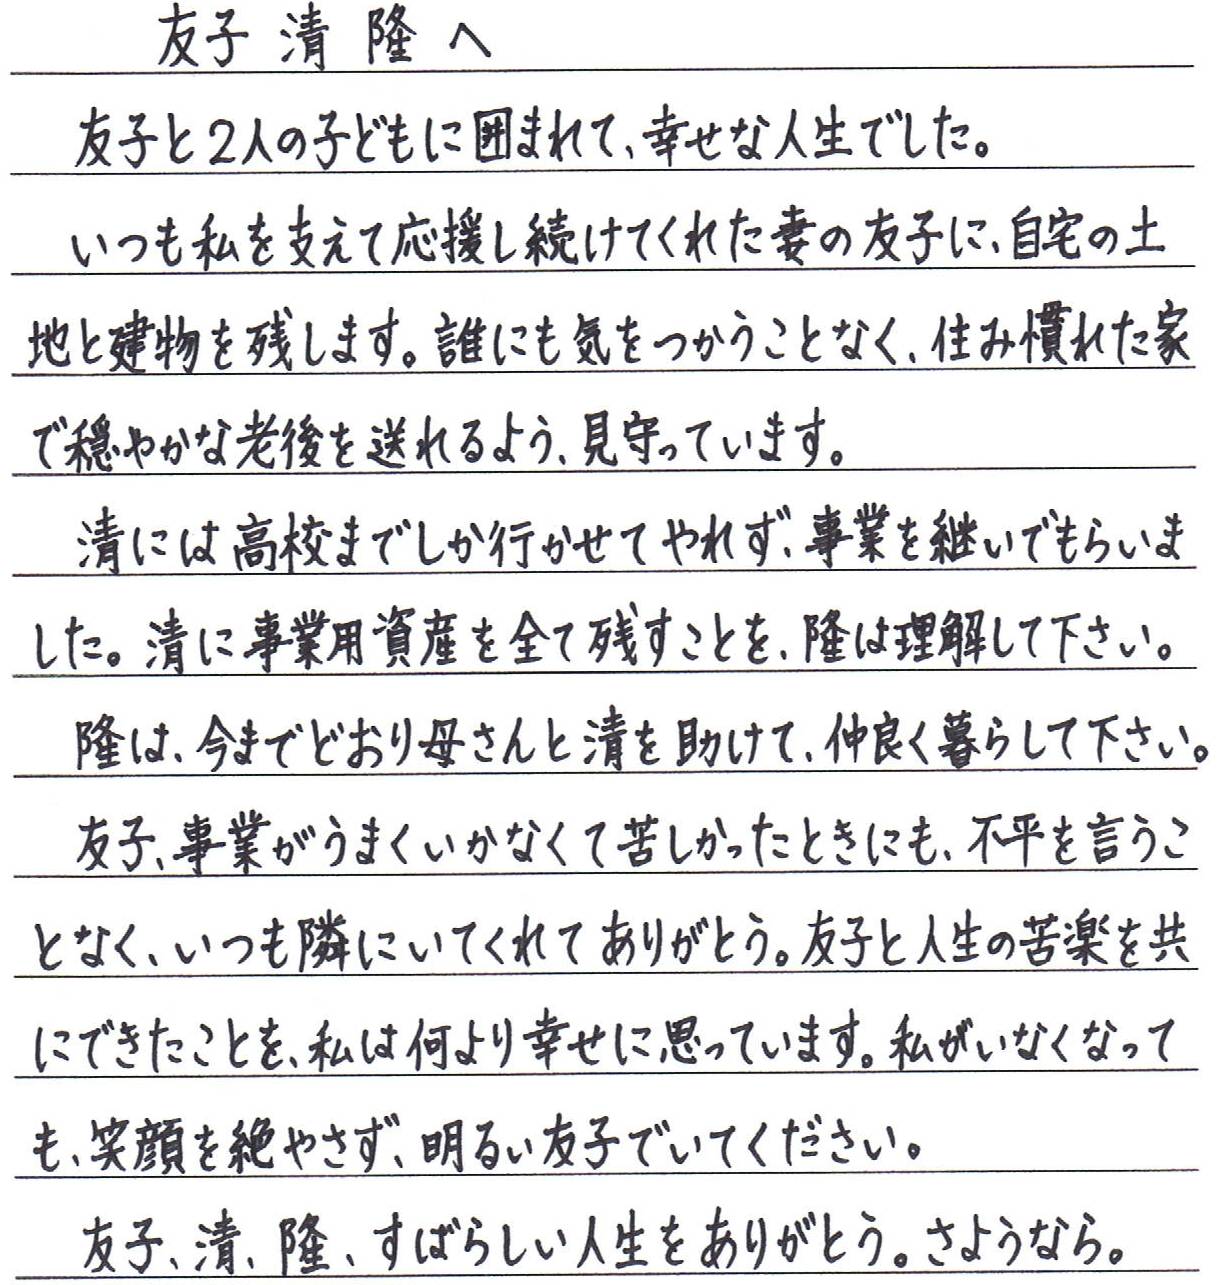 友子 清 隆へ
友子と2人の子どもに囲まれて、幸せな人生でした。
いつも私を支えて応援し続けてくれた妻の友子に、自宅の土
地と建物を残します。誰にも気をつかうことなく、住み慣れた家
で穏やかな老後を送れるよう、見守っています。
清には高校までしか行かせてやれず、事業を継いでもらいま
した。清に事業用資産を全て残すことを、隆は理解して下さい。
隆は、今までどおり母さんと清を助けて、仲良く暮らして下さい。
友子、事業がうまくいかなくて苦しかったときにも、不平を言うこ
となく、いつも隣にいてくれてありがとう。友子と人生の苦楽を共
にできたことを、私は何より幸せに思っています。私がいなくなって
も、笑顔を絶やさず、明るい友子でいてください。
友子、清、隆、すばらしい人生をありがとう。さようなら。